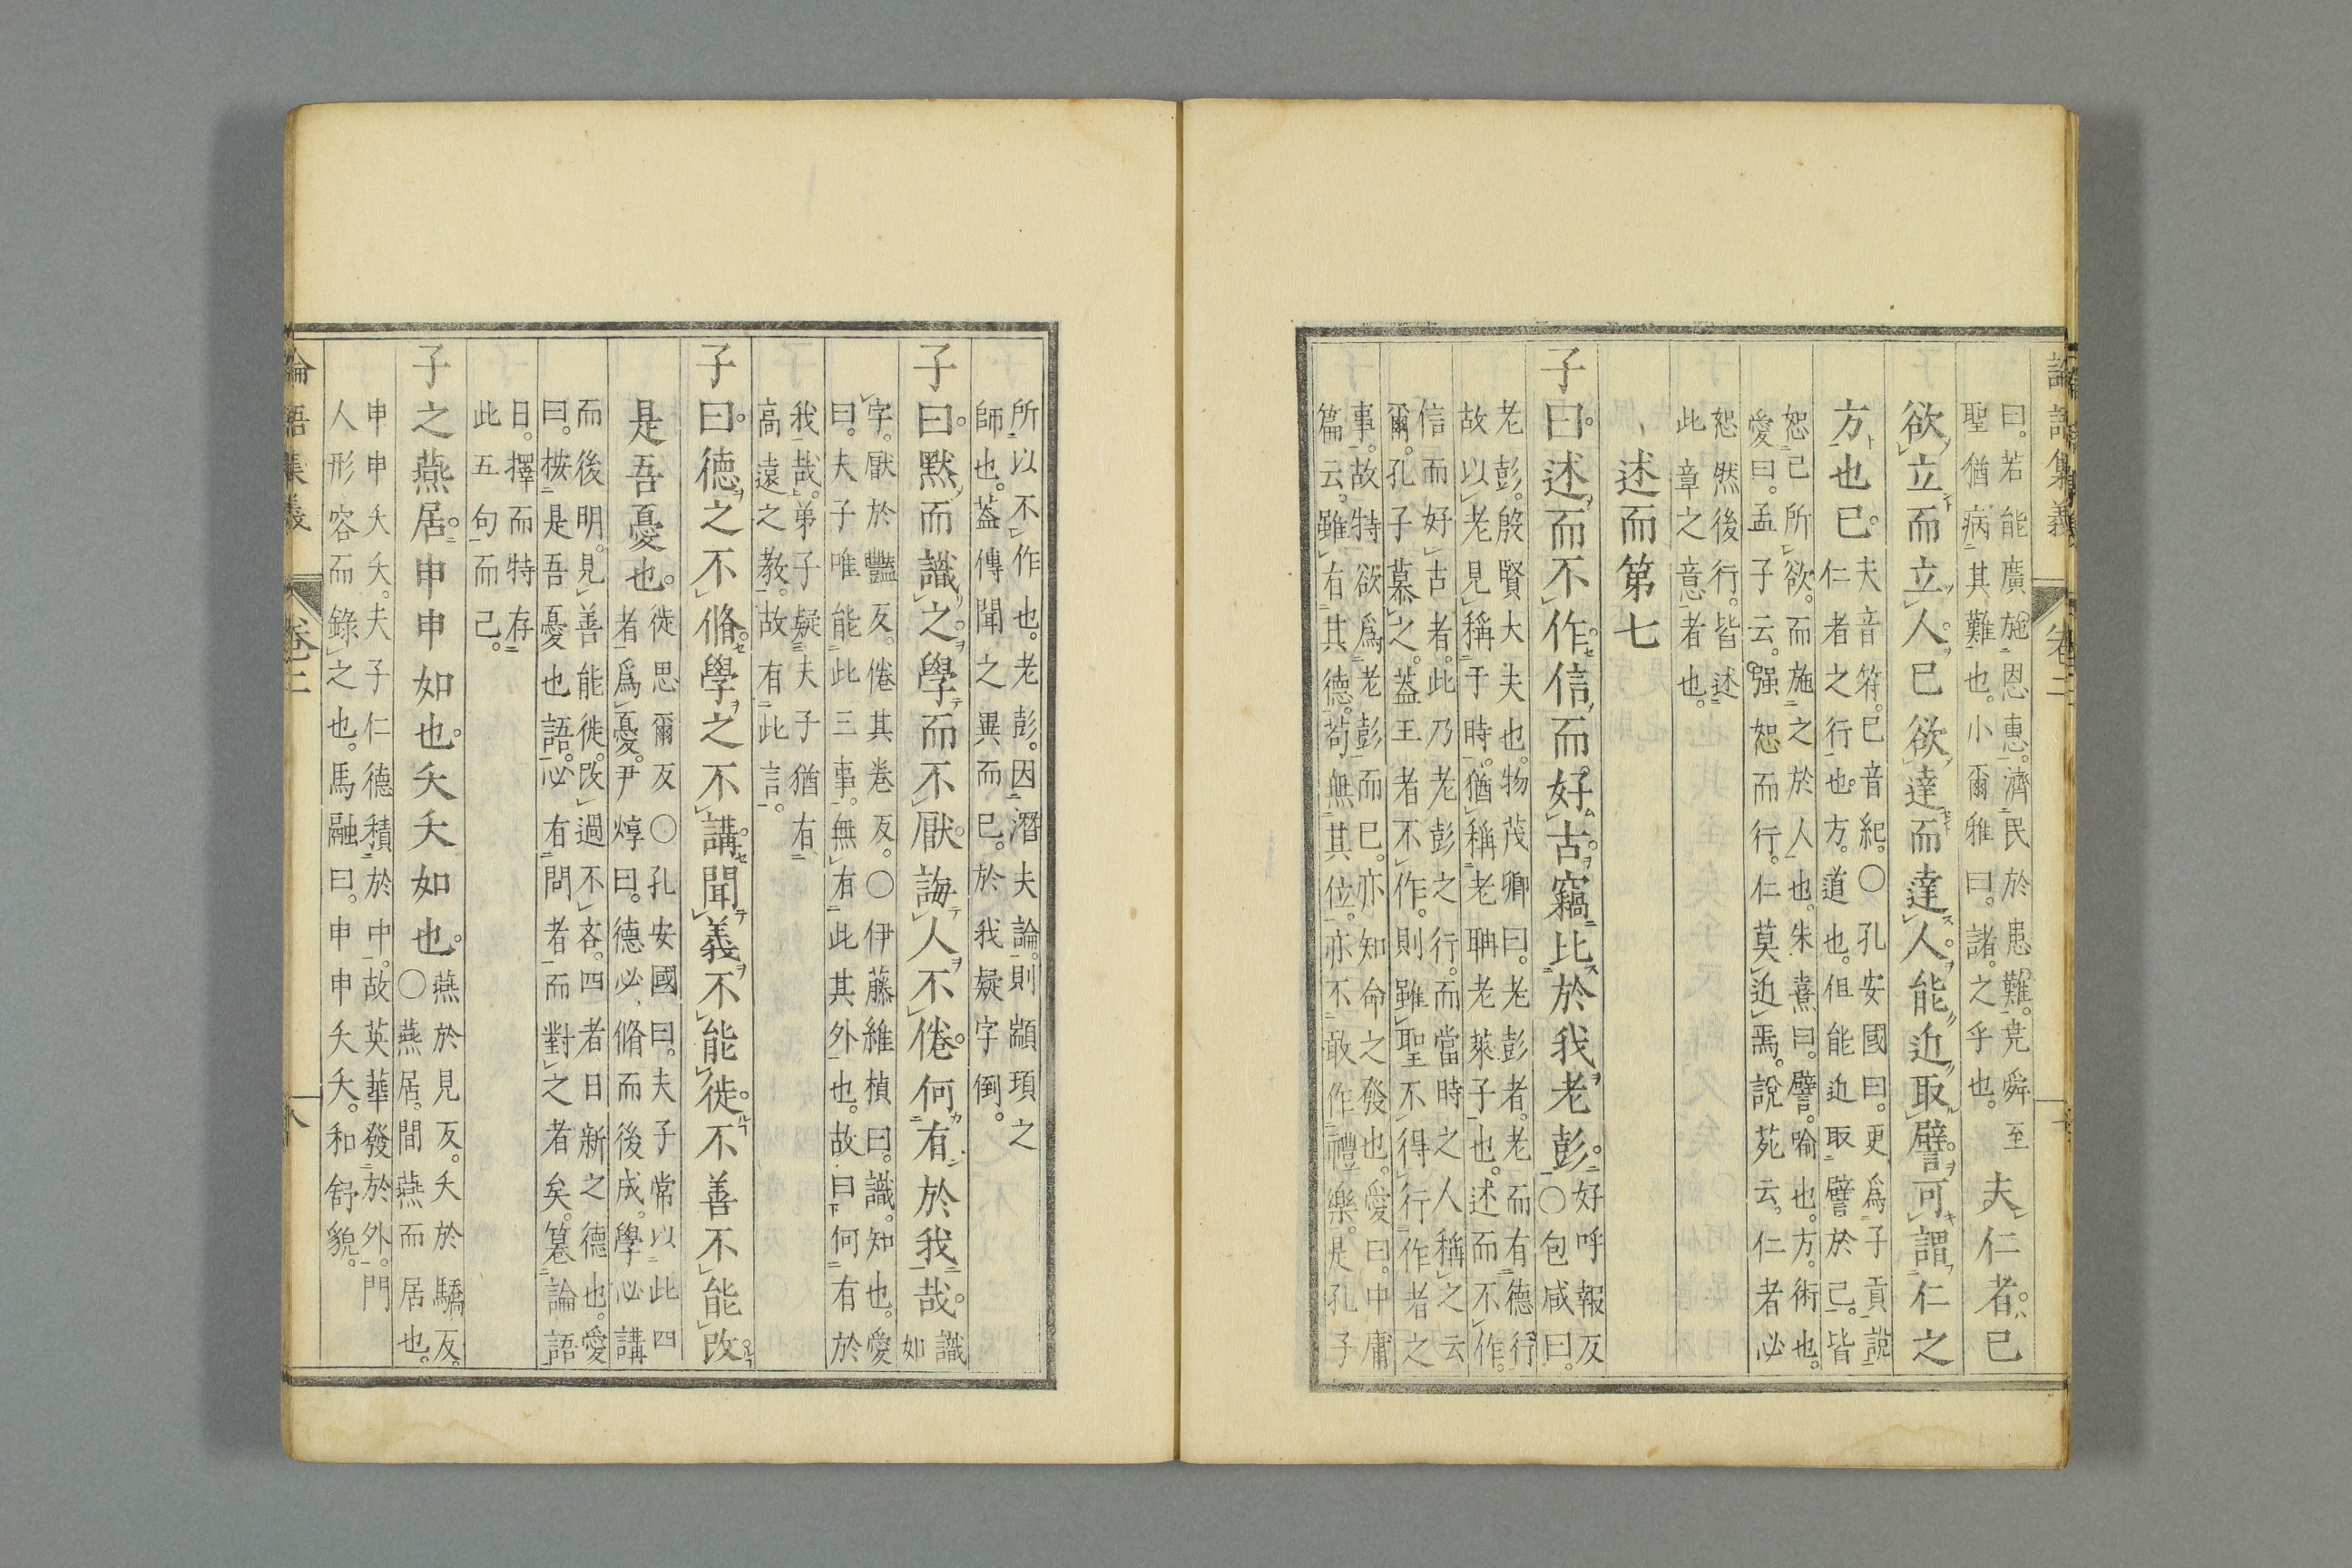 論語集義　卷二
曰。若能廣施恩惠。濟民於患難。堯舜至
聖猶病其難也。小爾雅曰。諸。之乎也。
夫仁者。己
欲立而立人。己欲達而達人。能近取譬。可謂仁之
方也已。
夫音符。已音紀。○孔安國曰。更爲子貢說
仁者之行也。方。道也。但能近取譬於己。皆
恕己所欲。而施之於人也。朱熹曰。譬。喻也。方。術也。
愛曰。孟子云。强恕而行。仁莫近焉。說苑云。仁者必
恕然後行。皆述
此章之意者也。
述而第七
子曰。述而不作。信而好古。竊比於我老彭。
好呼報反
○包咸曰。
老彭。殷賢大夫也。物茂卿曰。老彭者。老而有德行。
故以老見稱于時。猶稱老聃老萊子也。述而不作。
信而好古者。此乃老彭之行。而當時之人稱之云
爾。孔子慕之。蓋王者不作。則雖聖不得行作者之
事。故特欲爲老彭而已。亦知命之發也。愛曰。中庸
篇云。雖有其德。苟無其位。亦不敢作禮樂。是孔子
所以不作也。老彭。因潛夫論。則顓頊之
師也。蓋傳聞之異而已。於我疑字倒。
子曰。默而識之。學而不厭。誨人不倦。何有於我哉。
識
如
字。厭於豔反。倦其卷反。○伊藤維楨曰。識。知也。愛
曰。夫子唯能此三事。無有此其外也。故曰何有於
我哉。弟子疑夫子猶有
高遠之教。故有此言。
子曰。德之不脩。學之不講。聞義不能徙。不善不能改。
是吾憂也。
徙思爾反○孔安國曰。夫子常以此四
者爲憂。尹焞曰。德必脩而後成。學必講
而後明。見善能徙。改過不吝。四者日新之德也。愛
曰。按是吾憂也語。必有問者而對之者矣。纂論語
日。擇而特存
此五句而已。
子之燕居。申申如也。夭夭如也。
燕於見反。夭於驕反。
○燕居。間燕而居也。
申申夭夭。夫子仁德積於中。故英華發於外。門
人形容而錄之也。馬融曰。申申夭夭。和舒貌。
論語集義　卷二　八